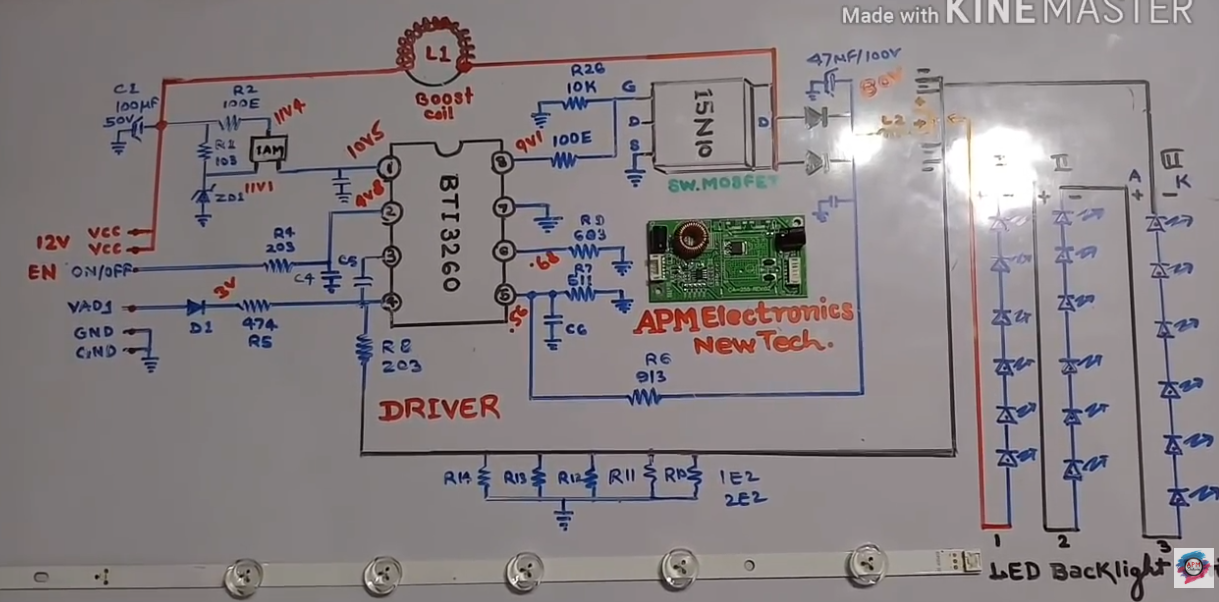 Made with KINEMASTER
L1
Boost
coil
47µF/100V
80V
C1
100µF
50V
R2
100E
11V4
R1
103
1AM
ZD1
11V1
10V5
4V8
R26
10K
100E
9V1
G
D
S
15N10
D
SW.MOSFET
L2
+
+
1
2
3
4
BTI3260
8
7
6
5
.68
.56
R9
683
R7
511
C6
12V
VCC
VCC
EN
ON/OFF
R4
203
C4
C5
VAD1
D1
3V
474
R5
GND
GND
R8
203
R6
913
APM Electronics
New Tech.
DRIVER
R14
R13
R12
R11
R10
1E2
2E2
A
K
+
-
1
2
3
LED Backlight
APM